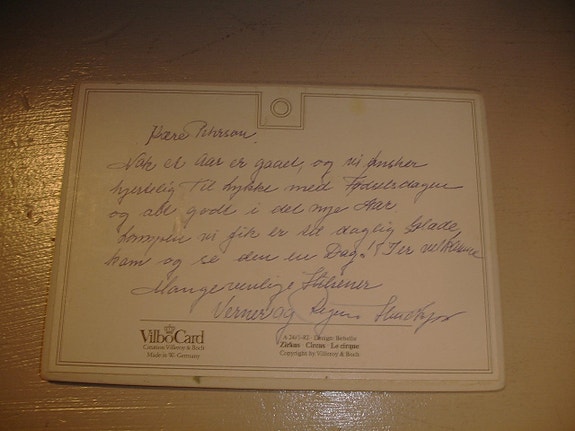 Kære Peterson.
Nok et Aar er gaaet, og vi ønsker
hjertelig til lykke med Fødselsdagen
og alt godt i det nye Aar
vi fik er til daglig Glæde,
kom og se den en Dag! I er velkomne
Mange venlige Hilsener
Verner og
VilboCard
Creation Villeroy & Boch
Made in W.-Germany
Design:
Zirkus · Circus · Le cirque
Copyright by Villeroy & Boch